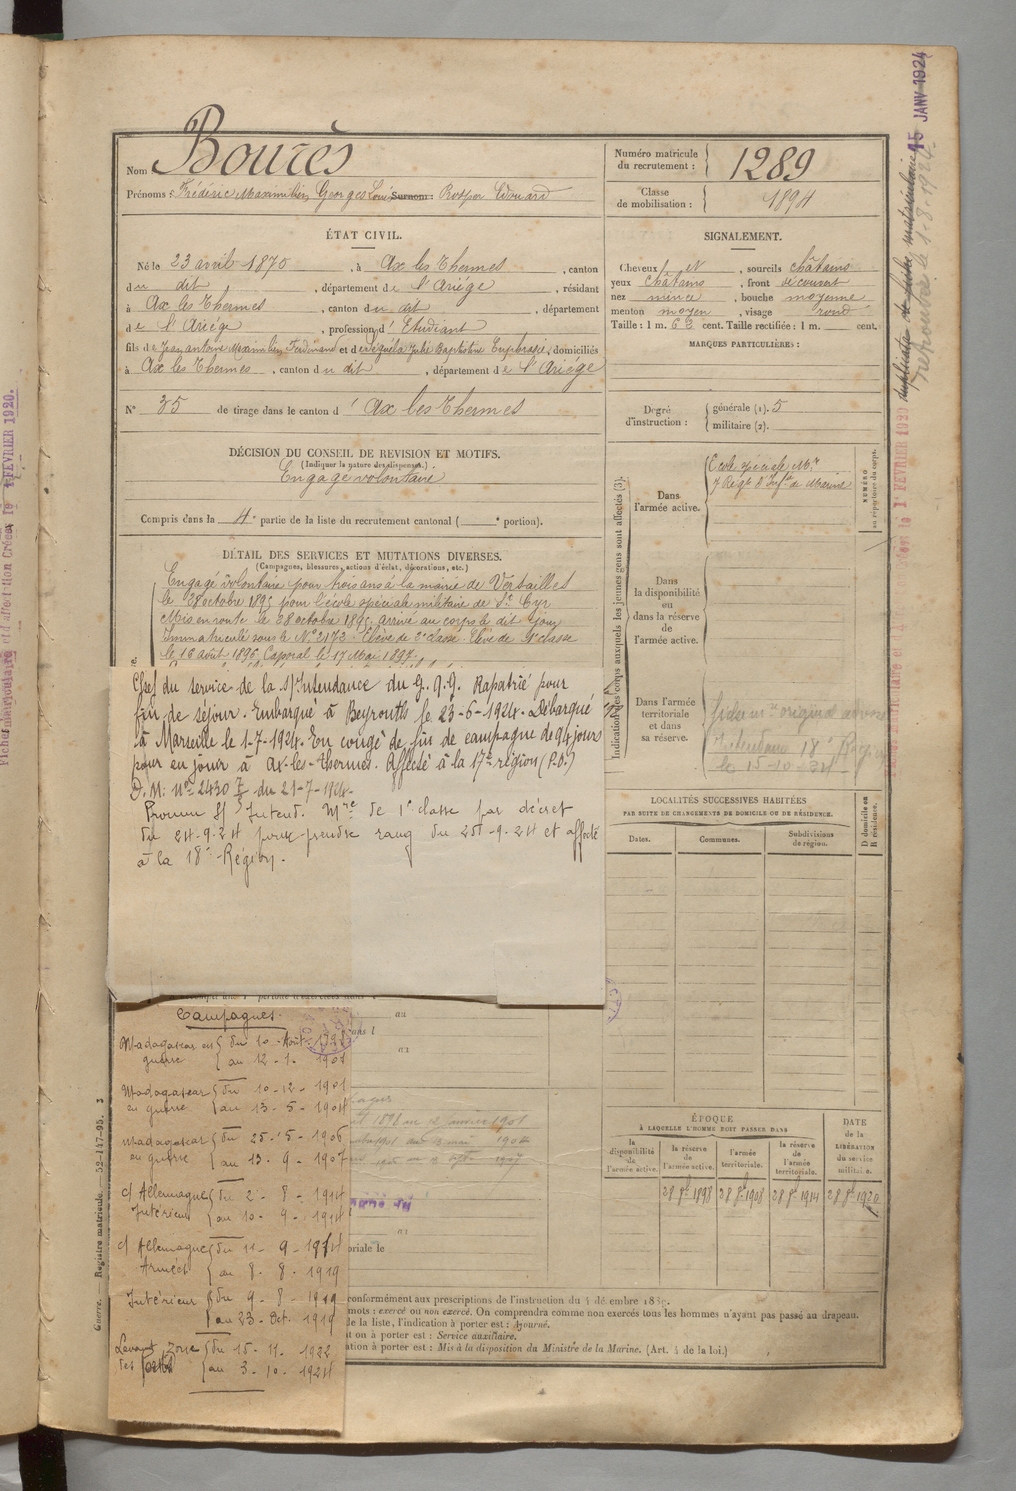 Nom Bourès
Prénoms : Frédéric Maximilien Georges Louis Surnom : Prosper Edouard
Numéro matricule du recrutement : 1289
Classe de mobilisation : 1894
ÉTAT CIVIL.
Né le 23 avril 1875, à Ax les Thermes, canton
du dit, département de l'Ariège, résidant
à Ax les Thermes, canton du dit, département
de l'Ariège, profession d' Etudiant
fils de Jean antoine Maximilien Ferdinand et de Julie Baptistine Euphrasie, domiciliés
à Ax les Thermes, canton du dit, département de l'Ariège
N° 35 de tirage dans le canton d' Ax les Thermes
SIGNALEMENT.
Cheveux et, sourcils châtains
yeux châtains, front découvert
nez mince, bouche moyenne
menton moyen, visage rond
Taille : 1 m. 63 cent. Taille rectifiée : 1 m. cent.
MARQUES PARTICULIÈRES :
Degré d'instruction : générale (1). 5
militaire (2).
DÉCISION DU CONSEIL DE REVISION ET MOTIFS.
(Indiquer la nature des dispenses.)
Engagé volontaire
Compris dans la 4e partie de la liste du recrutement cantonal ( e portion).
DÉTAIL DES SERVICES ET MUTATIONS DIVERSES.
(Campagnes, blessures, actions d'éclat, décorations, etc.)
Engagé volontaire pour trois ans à la mairie de Versailles
le 28 octobre 1895 pour l'école spéciale militaire de St Cyr
Mis en route le 28 octobre 1895, arrivé au corps le dit jour
Immatriculé sous le N° 2173. Elève de 2e classe. Elève de 1e classe
le 16 août 1896. Caporal le 17 Mai 1897.
Chef du service de la s/Intendance du G.Q.G. Rapatrié pour
fin de séjour. Embarqué à Beyrouth le 23-6-1924. Débarqué
à Marseille le 1-7-1924. En congé de fin de campagne de 94 jours
pour en jouir à Ax-les-Thermes. Affecté à la 17e région (P.O.)
D.M. n° 2430 du 21-7-1924.
Promu Intend. Mre de 1e classe par décret
du 24-9-24 pour prendre rang du 25-9-24 et affecté
à la 18e Région.
Campagnes.
Madagascar en guerre du 10 - Août - 1898
au 12-1-1901
Madagascar en guerre du 10-12-1901
au 13-5-1904
Madagascar en guerre du 25-5-1906
au 13-9-1907
c/ Allemagne Intérieur du 2-8-1914
au 10-9-1914
c/ Allemagne Armées du 11-9-1914
au 8-8-1919
Intérieur du 9-8-1919
au 23-Oct. 1919
Levant Zone des du 15-11-1922
au 3-10-1924
Indication des corps auxquels les jeunes gens sont affectés (3).
NUMÉRO au répertoire du corps.
Dans l'armée active.
Ecole spéciale Mre
7 Régt d'Infie de Marine
Dans la disponibilité ou dans la réserve de l'armée active.
Dans l'armée territoriale et dans sa réserve.
Intendance 18e Région
le 15-10-24
LOCALITÉS SUCCESSIVES HABITÉES
PAR SUITE DE CHANGEMENTS DE DOMICILE OU DE RÉSIDENCE.
Dates. Communes. Subdivisions de région. D domicile ou R résidence.
ÉPOQUE
À LAQUELLE L'HOMME DOIT PASSER DANS
la disponibilité de l'armée active. la réserve de l'armée active. l'armée territoriale. la réserve de l'armée territoriale. DATE de la LIBÉRATION du service militaire.
28 8bre 1898 28 8bre 1908 28 8bre 1914 28 8bre 1920
au
toriale le
conformément aux prescriptions de l'instruction du 4 décembre 1889.
mots : exercé ou non exercé. On comprendra comme non exercés tous les hommes n'ayant pas passé au drapeau.
de la liste, l'indication à porter est : Ajourné.
ation à porter est : Service auxiliaire.
ation à porter est : Mis à la disposition du Ministre de la Marine. (Art. 4 de la loi.)
Guerre. — Registre matricule. — 52-147-95.
15 JANV 1924
duplicata de fiche matriculaire
retrouvée le 1-8-1924
Fiche matriculaire et d'affectation Créées le 1er FEVRIER 1920.
1er FEVRIER 1920